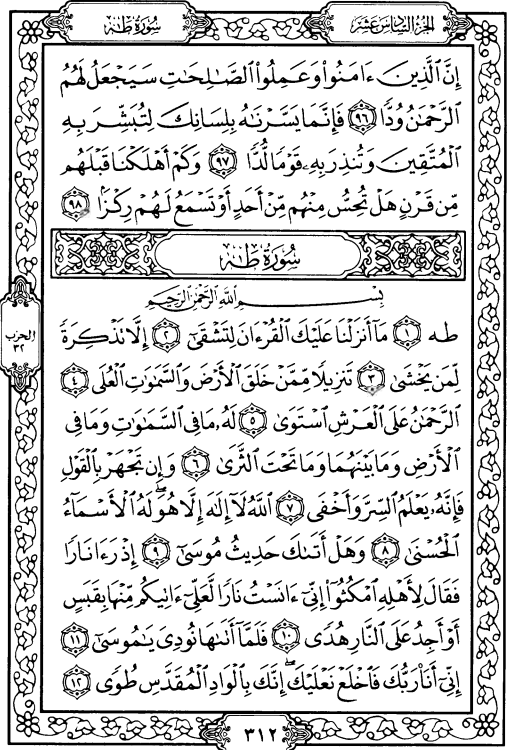 سُورَةُ طه
الجُزْءُ السَّادِسَ عَشَرَ
إِنَّ الَّذِينَ ءَامَنُوا۟ وَعَمِلُوا۟ الصَّٰلِحَٰتِ سَيَجْعَلُ لَهُمُ
الرَّحْمَٰنُ وُدًّا ٩٦ فَإِنَّمَا يَسَّرْنَٰهُ بِلِسَانِكَ لِتُبَشِّرَ بِهِ
الْمُتَّقِينَ وَتُنذِرَ بِهِۦ قَوْمًا لُّدًّا ٩٧ وَكَمْ أَهْلَكْنَا قَبْلَهُم
مِّن قَرْنٍ هَلْ تُحِسُّ مِنْهُم مِّنْ أَحَدٍ أَوْ تَسْمَعُ لَهُمْ رِكْزًا ٩٨
سُورَةُ طه
بِسْمِ اللَّهِ الرَّحْمَٰنِ الرَّحِيمِ
طه ١ مَآ أَنزَلْنَا عَلَيْكَ الْقُرْءَانَ لِتَشْقَىٰٓ ٢ إِلَّا تَذْكِرَةً
لِّمَن يَخْشَىٰ ٣ تَنزِيلًا مِّمَّنْ خَلَقَ الْأَرْضَ وَالسَّمَٰوَٰتِ الْعُلَى ٤
الرَّحْمَٰنُ عَلَى الْعَرْشِ اسْتَوَىٰ ٥ لَهُۥ مَا فِي السَّمَٰوَٰتِ وَمَا فِي
الْأَرْضِ وَمَا بَيْنَهُمَا وَمَا تَحْتَ الثَّرَىٰ ٦ وَإِن تَجْهَرْ بِالْقَوْلِ
فَإِنَّهُۥ يَعْلَمُ السِّرَّ وَأَخْفَى ٧ اللَّهُ لَآ إِلَٰهَ إِلَّا هُوَۖ لَهُ الْأَسْمَآءُ
الْحُسْنَىٰ ٨ وَهَلْ أَتَىٰكَ حَدِيثُ مُوسَىٰٓ ٩ إِذْ رَءَا نَارًا
فَقَالَ لِأَهْلِهِ امْكُثُوٓا۟ إِنِّيٓ ءَانَسْتُ نَارًا لَّعَلِّيٓ ءَاتِيكُم مِّنْهَا بِقَبَسٍ
أَوْ أَجِدُ عَلَى النَّارِ هُدًى ١٠ فَلَمَّآ أَتَىٰهَا نُودِيَ يَٰمُوسَىٰٓ ١١
إِنِّيٓ أَنَا۠ رَبُّكَ فَاخْلَعْ نَعْلَيْكَۖ إِنَّكَ بِالْوَادِ الْمُقَدَّسِ طُوًى ١٢
الحزب
٣٢
٣١٢